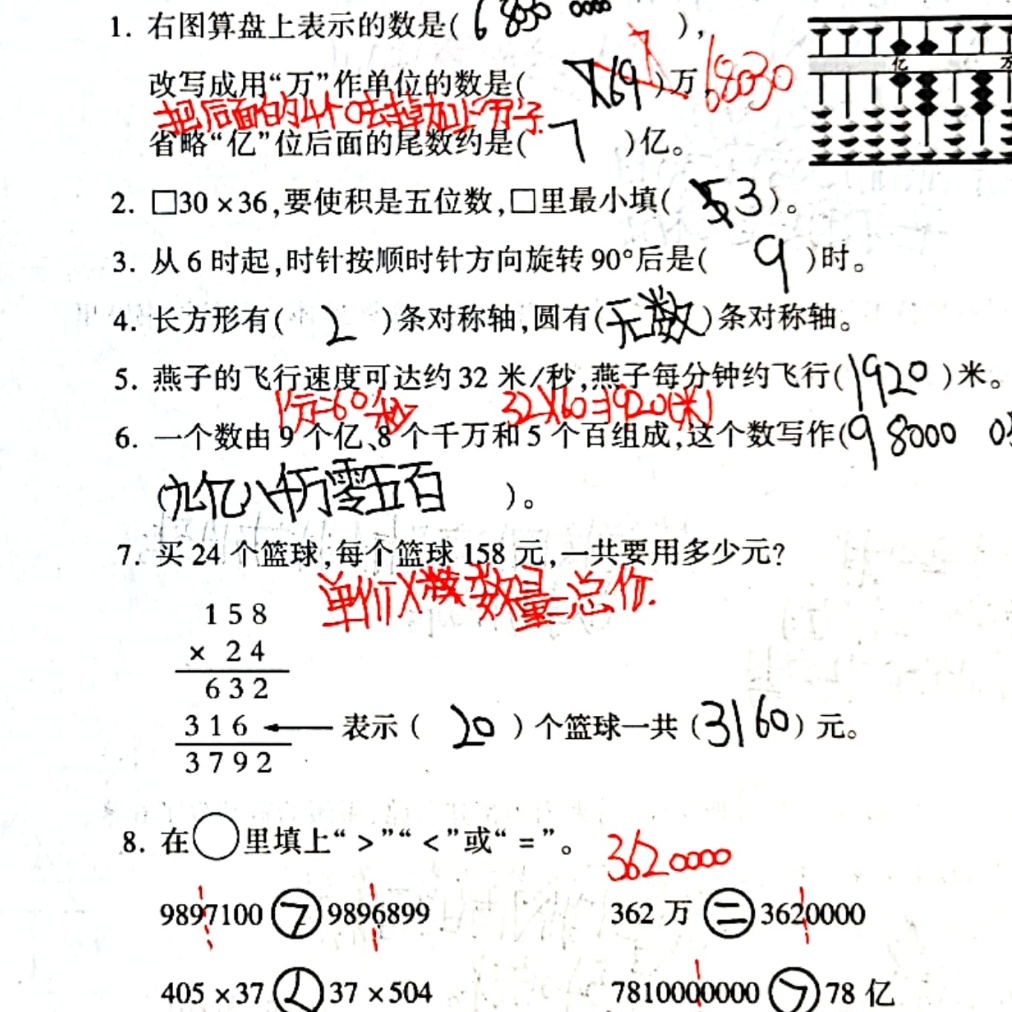 1. 右图算盘上表示的数是( 6 8030 0000 ),
亿 万
改写成用“万”作单位的数是( )万, 68030
把后面的4个0去掉加上“万”字
省略“亿”位后面的尾数约是( 7 )亿。
2. □30×36,要使积是五位数,□里最小填( 3 )。
3. 从6时起,时针按顺时针方向旋转90°后是( 9 )时。
4. 长方形有( 2 )条对称轴,圆有(无数)条对称轴。
5. 燕子的飞行速度可达约32米/秒,燕子每分钟约飞行(1920)米。
1分=60秒 32×60=1920(米)
6. 一个数由9个亿、8个千万和5个百组成,这个数写作(9 8000 0
(九亿八千万零五百 )。
7. 买24个篮球,每个篮球158元,一共要用多少元?
单价×数量=总价.
158
× 24
632
316 ← 表示( 20 )个篮球一共(3160)元。
3792
8. 在○里填上“>”“<”或“=”。
3620000
9897100 > 9896899 362万 = 3620000
405×37 < 37×504 7810000000 > 78亿